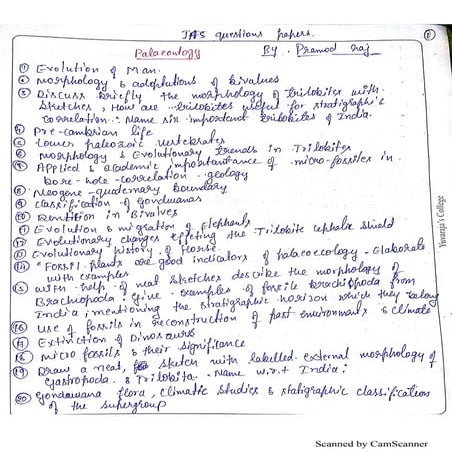 IAS questions papers.
Palaeontology
By. Pramod raj
6
① Evolution of Man.
② Morphology & adoptations of bivalues
③ Discuss briefly the morphology of trilobites with
sketches, How are trilobites useful for stratigraphic
correlation. Name six important trilobites of India.
④ Pre-cambrian life
⑤ Lower palaeozoic vertebrates
⑥ Morphology & Evolutionary trends in Trilobites
⑦ Applied & academic importantance of micro-fossiles in
bore-hole-correlation geology
⑧ Neogene-quaternary Boundary
⑨ classification of Gondwanas
⑩ Dentition in Bivalves
⑪ Evolution & migration of Elephants
⑫ Evolutionary changes effecting the Trilobite cephalic shield
⑬ Evolutionary history of Horse.
⑭ "Fossil plants are good indicators of palaeoecology - Elaborate
with examples
⑮ with help of neat sketches describe the morphology of
Brachiopoda. Give examples of fossile brachiopoda from
India, mentioning the stratigraphic horison which they belong
⑯ Use of fossils in reconstruction of past environmants & climate
⑰ Extinction of Dinosaurs
⑱ Micro fossils & their significance
⑲ Draw a neat, sketch with labelled external morphology of
Gastropoda & Trilobita. Name w.r.t India:
⑳ Gondwana flora, climatic studies & statigraphic classification
of the supergroup
Yuvaraja's College
Scanned by CamScanner